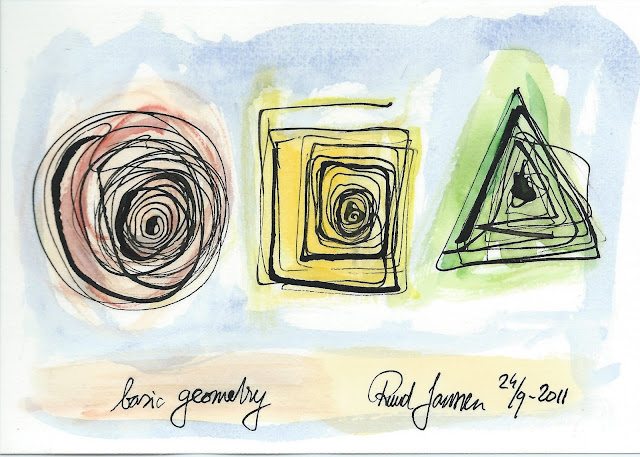 basic geometry Ruud Janssen 24/9-2011